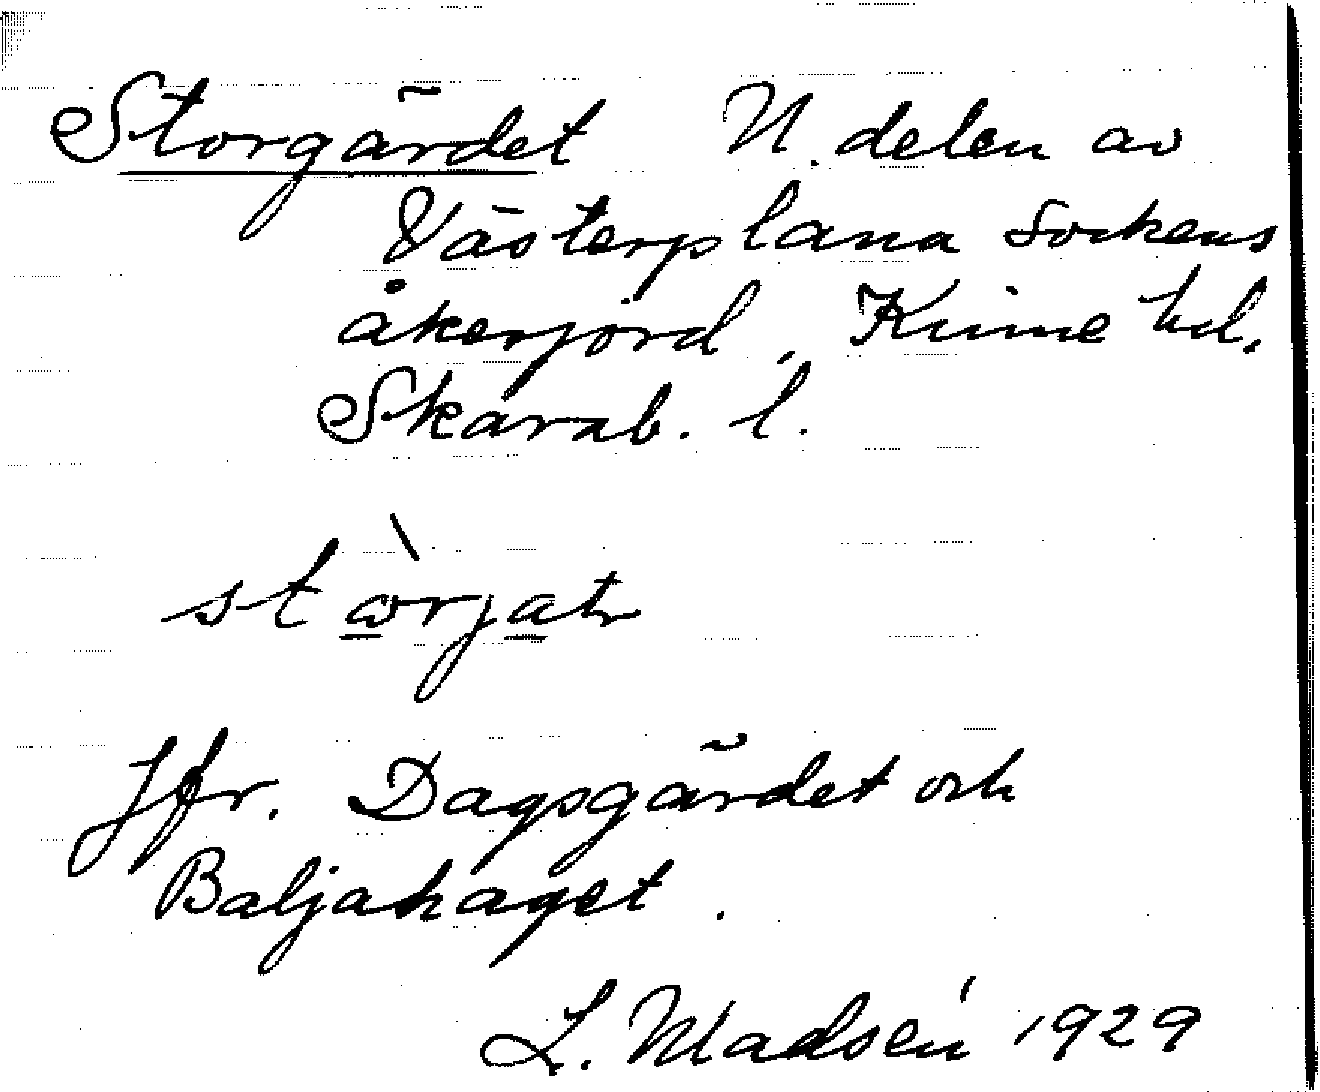 Storgärdet N. delen av
Västerplana sockens
åkerjord, Kinne hd.
Skarab. l.
Jfr. Dagsgärdet och
Baljahaget.
L. Madsén 1929